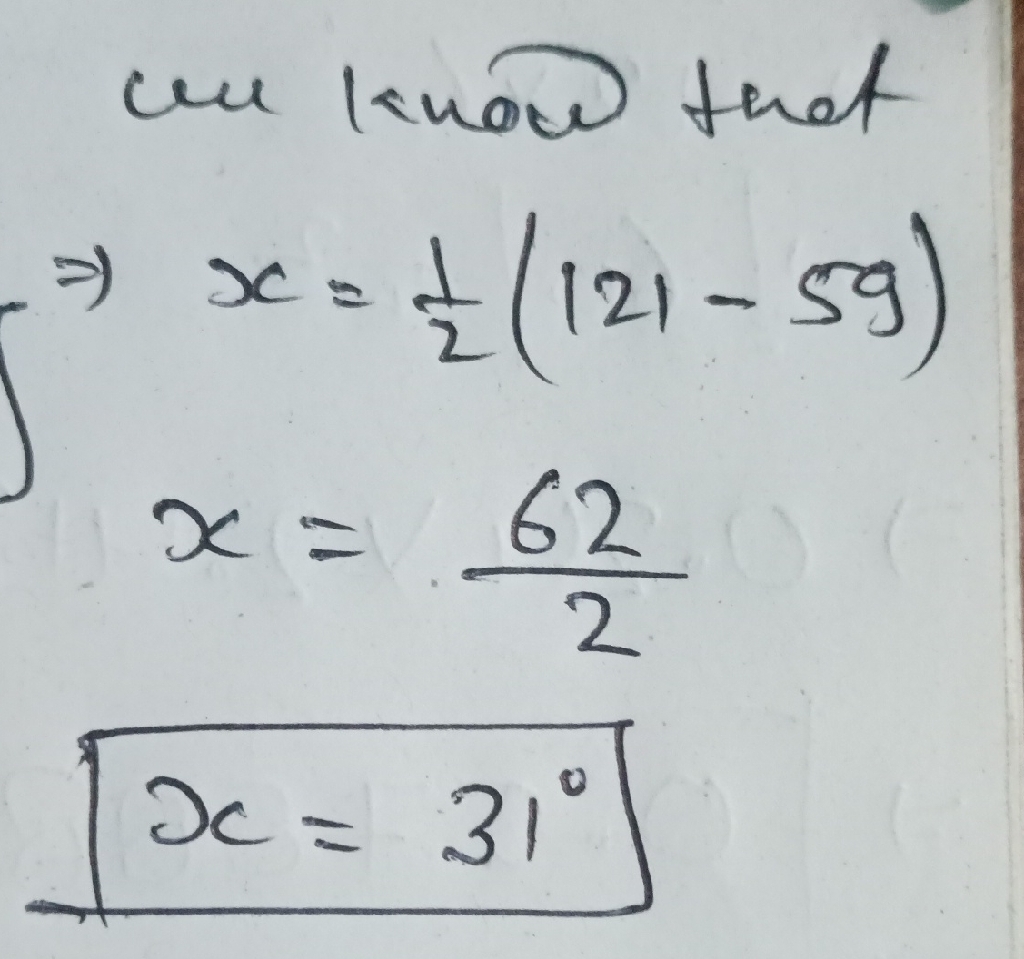 we know that
⇒ x = 1/2 (121 - 59)
x = 62/2
x = 31°